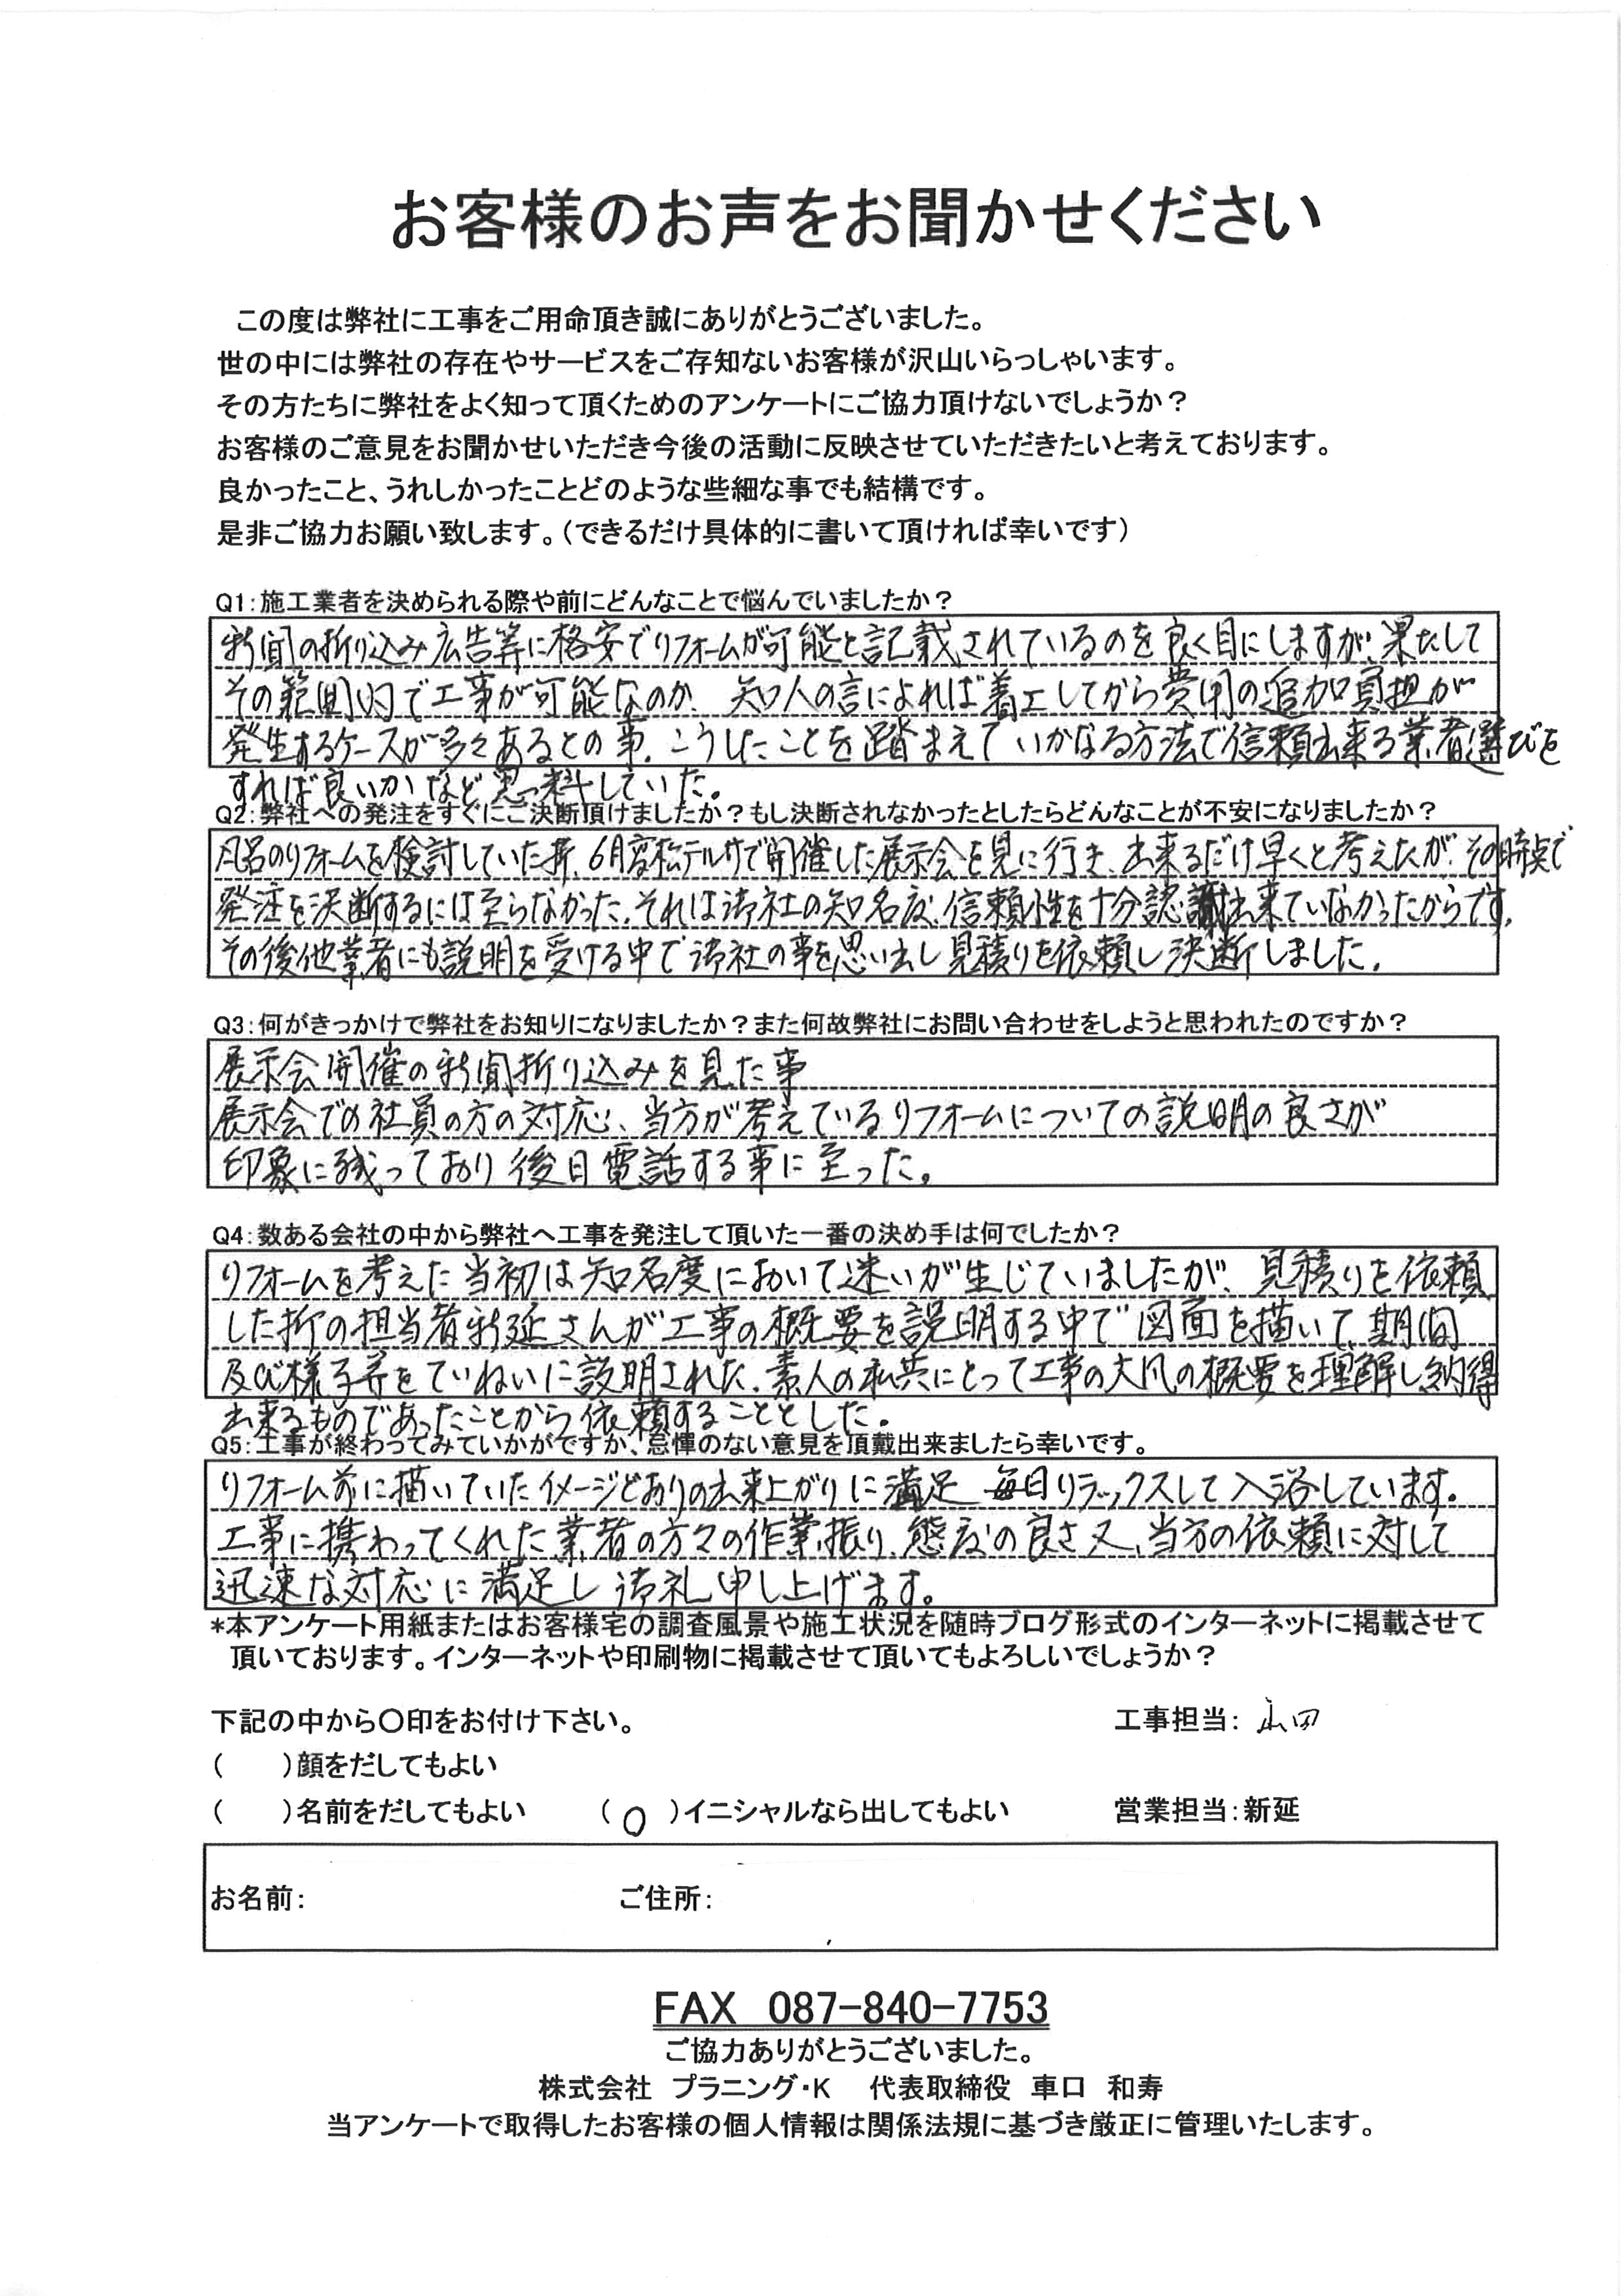 お客様のお声をお聞かせください
この度は弊社に工事をご用命頂き誠にありがとうございました。
世の中には弊社の存在やサービスをご存知ないお客様が沢山いらっしゃいます。
その方たちに弊社をよく知って頂くためのアンケートにご協力頂けないでしょうか？
お客様のご意見をお聞かせいただき今後の活動に反映させていただきたいと考えております。
良かったこと、うれしかったことどのような些細な事でも結構です。
是非ご協力お願い致します。（できるだけ具体的に書いて頂ければ幸いです）
Q1：施工業者を決められる際や前にどんなことで悩んでいましたか？
新聞の折り込み広告等に格安でリフォームが可能と記載されているのを良く目にしますが、果たして
その範囲内で工事が可能なのか、知人の言によれば着工してから費用の追加負担が
発生するケースが多々あるとの事、こうしたことを踏まえていかなる方法で信頼出来る業者選びを
すれば良いかなど思料していた。
Q2：弊社への発注をすぐにご決断頂けましたか？もし決断されなかったとしたらどんなことが不安になりましたか？
風呂のリフォームを検討していた折、6月高松テルサで開催した展示会を見に行き、出来るだけ早くと考えたが、その時点で
発注を決断するには至らなかった、それは御社の知名度、信頼性を十分認識出来ていなかったからです、
その後他業者にも説明を受ける中で御社の事を思い出し見積りを依頼し決断しました。
Q3：何がきっかけで弊社をお知りになりましたか？また何故弊社にお問い合わせをしようと思われたのですか？
展示会開催の新聞折り込みを見た事
展示会での社員の方の対応、当方が考えているリフォームについての説明の良さが
印象に残っており後日電話する事に至った。
Q4：数ある会社の中から弊社へ工事を発注して頂いた一番の決め手は何でしたか？
リフォームを考えた当初は知名度において迷いが生じていましたが、見積りを依頼
した折の担当者新延さんが工事の概要を説明する中で図面を描いて、期間
及び様子等をていねいに説明された、素人の私共にとって工事の大凡の概要を理解し納得
出来るものであったことから依頼することとした。
Q5：工事が終わってみていかがですか、忌憚のない意見を頂戴出来ましたら幸いです。
リフォーム前に描いていたイメージどおりの出来上がりに満足 毎日リラックスして入浴しています。
工事に携わってくれた業者の方々の作業振り、態度の良さ又、当方の依頼に対して
迅速な対応に満足し御礼申し上げます。
*本アンケート用紙またはお客様宅の調査風景や施工状況を随時ブログ形式のインターネットに掲載させて
頂いております。インターネットや印刷物に掲載させて頂いてもよろしいでしょうか？
下記の中から〇印をお付け下さい。 工事担当：山田
（　　）顔をだしてもよい
（　　）名前をだしてもよい （〇）イニシャルなら出してもよい 営業担当：新延
お名前： ご住所：
FAX 087-840-7753
ご協力ありがとうございました。
株式会社 プラニング・K 代表取締役 車口 和寿
当アンケートで取得したお客様の個人情報は関係法規に基づき厳正に管理いたします。